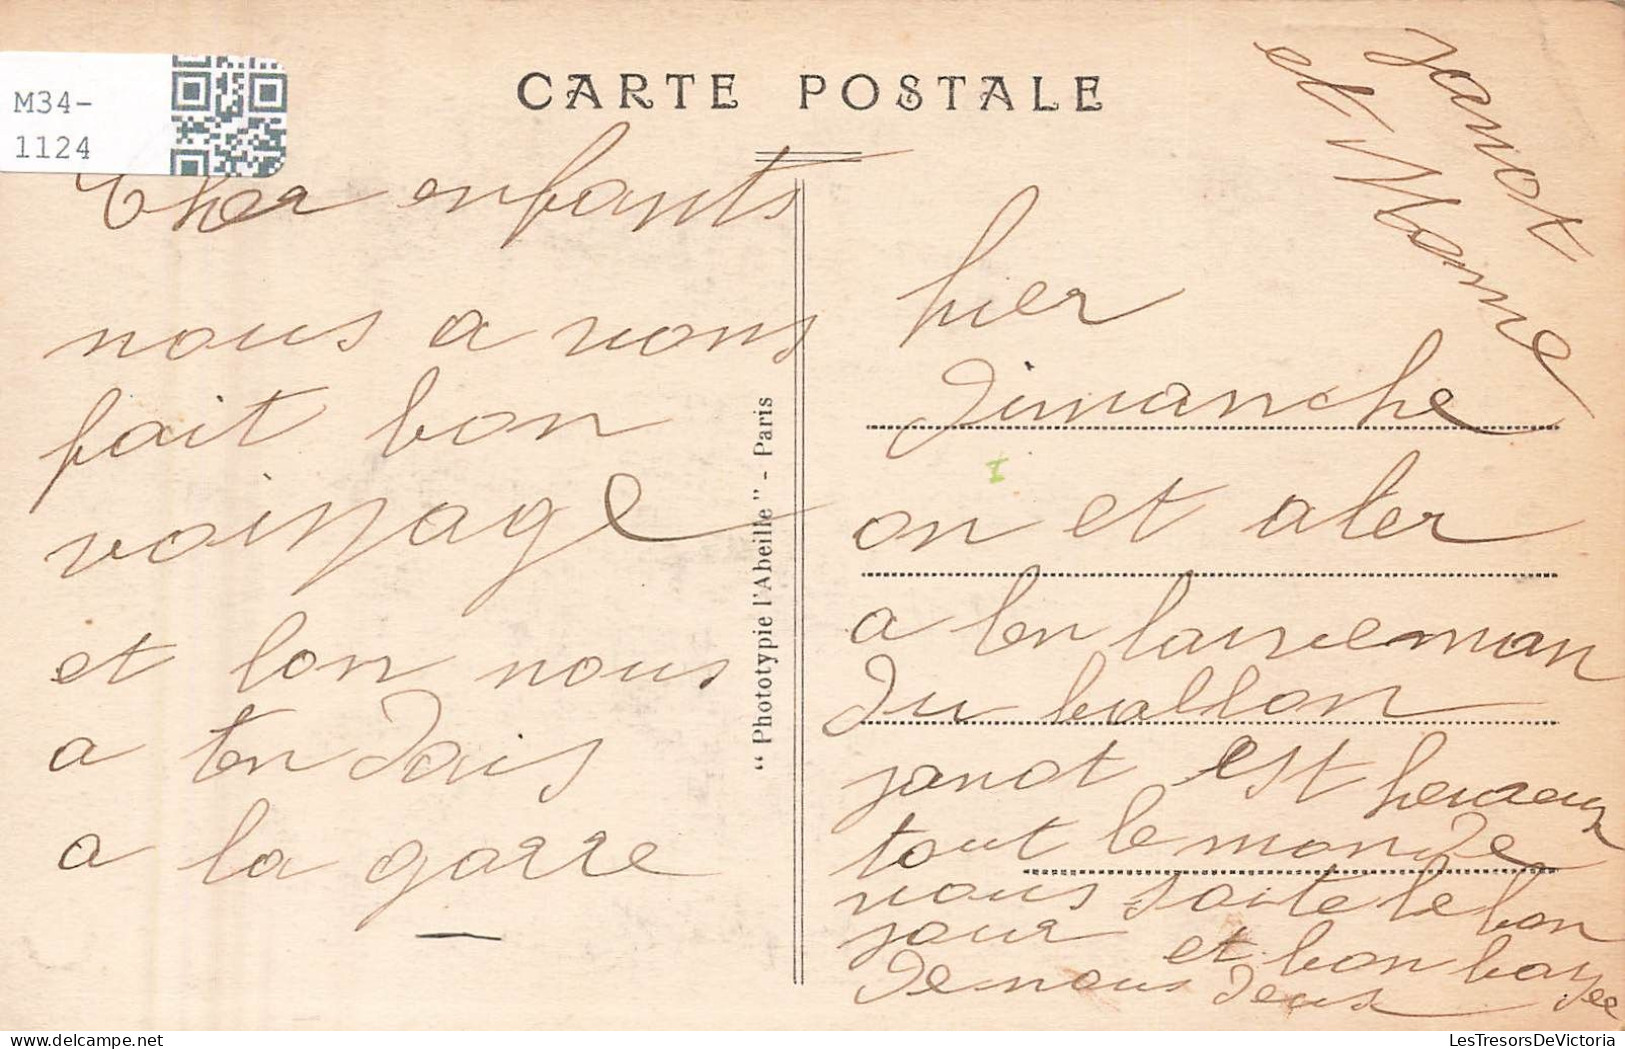 M34-
1124
CARTE POSTALE
Cher enfants
nous a vons
fait bon
voiyage
et lon nous
a ten dais
a la garre
"Phototypie l'Abeille" - Paris
hier
Dimanche
on et aler
a len laiveman
du ballon
janot est heureux
tout le monde
vous soite le bon
jour et bon baysee
de nous deux
janot
et Mame
LesTresorsDeVictoria